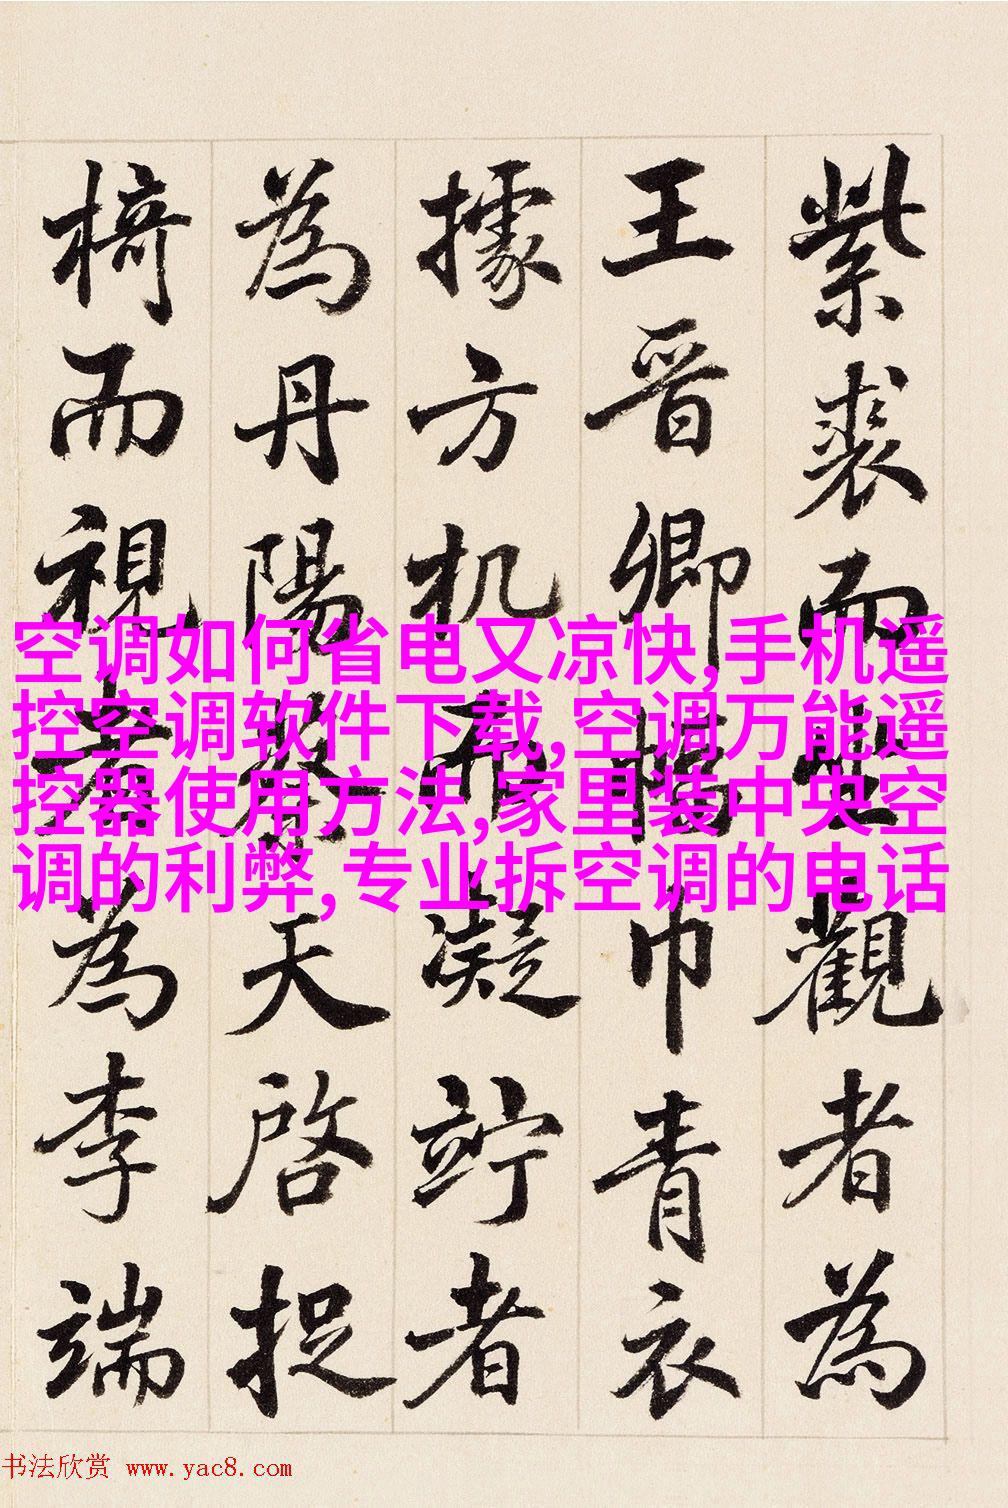 紫裘而坐觀者為
王晋卿幅巾青衣
據方机而凝竚者
為丹陽蔡天啓捉
椅而視者為李端
空调如何省电又凉快,手机遥
控空调软件下载,空调万能遥
控器使用方法,家里装中央空
调的利弊,专业拆空调的电话
书法欣赏 www.yac8.com